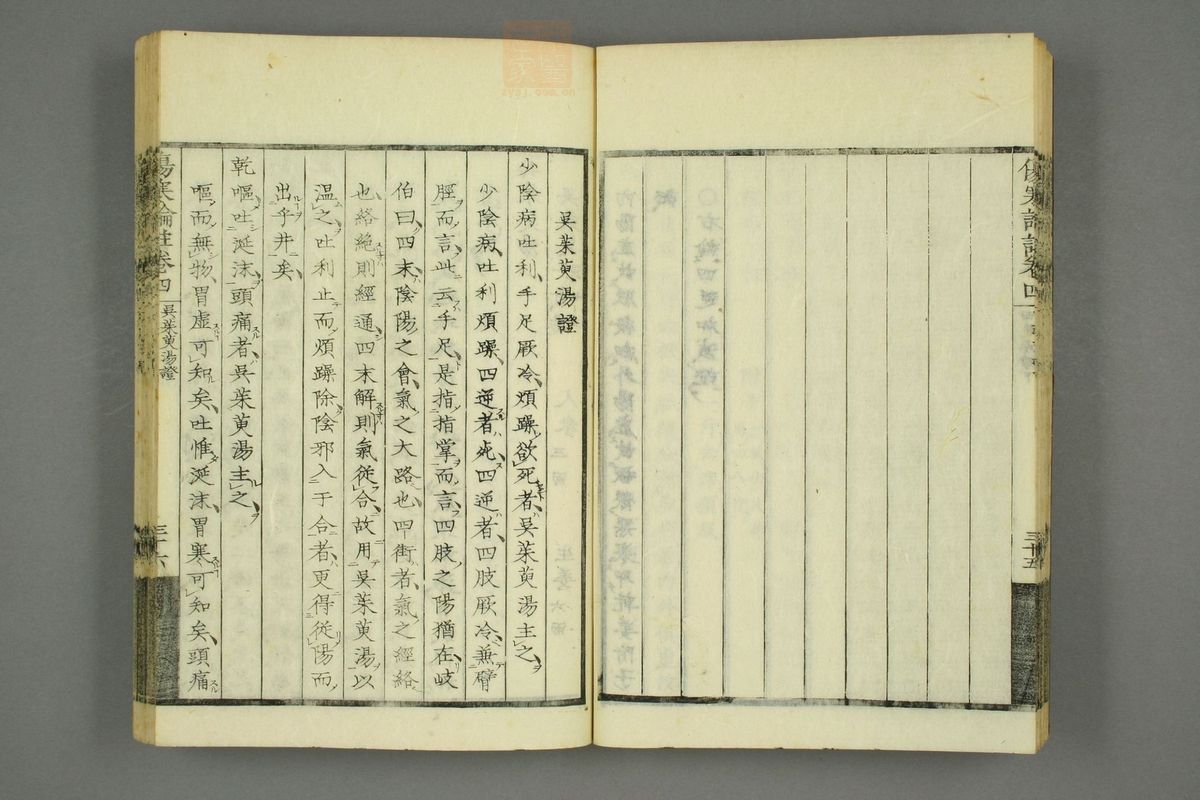 吳茱萸湯證
少陰病吐利手足厥冷煩躁欲死者吳茱萸湯主之
少陰病吐利煩躁四逆者死四逆者四肢厥冷兼臂
脛而言此云手足是指指掌而言四肢之陽猶在岐
伯曰四末陰陽之會氣之大路也四街者氣之經絡
也絡絕則經通四末解則氣從合故用吳茱萸湯以
温之吐利止而煩躁除陰邪入于合者更得從陽而
出乎井矣
乾嘔吐涎沫頭痛者吳茱萸湯主之
嘔而無物胃虛可知矣吐惟涎沫胃寒可知矣頭痛
傷寒論註卷四
吳茱萸湯證
三十六
卷四
三十五
zysj.com.cn